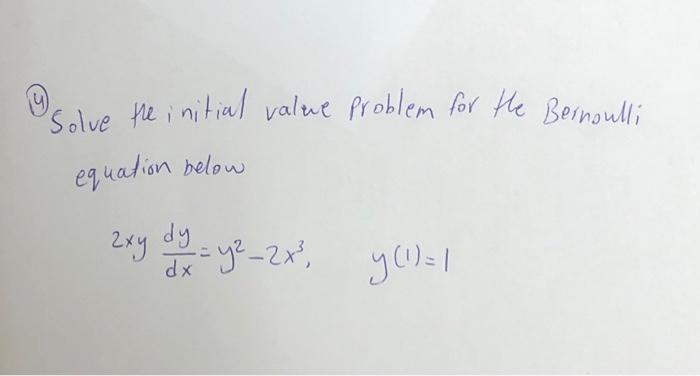 4 Solve the initial value problem for the Bernoulli
equation below
2xy dy/dx = y² - 2x³, y(1)=1